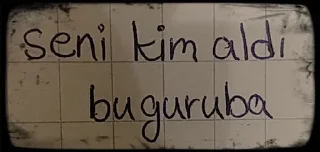 seni kim aldi
bu guruba